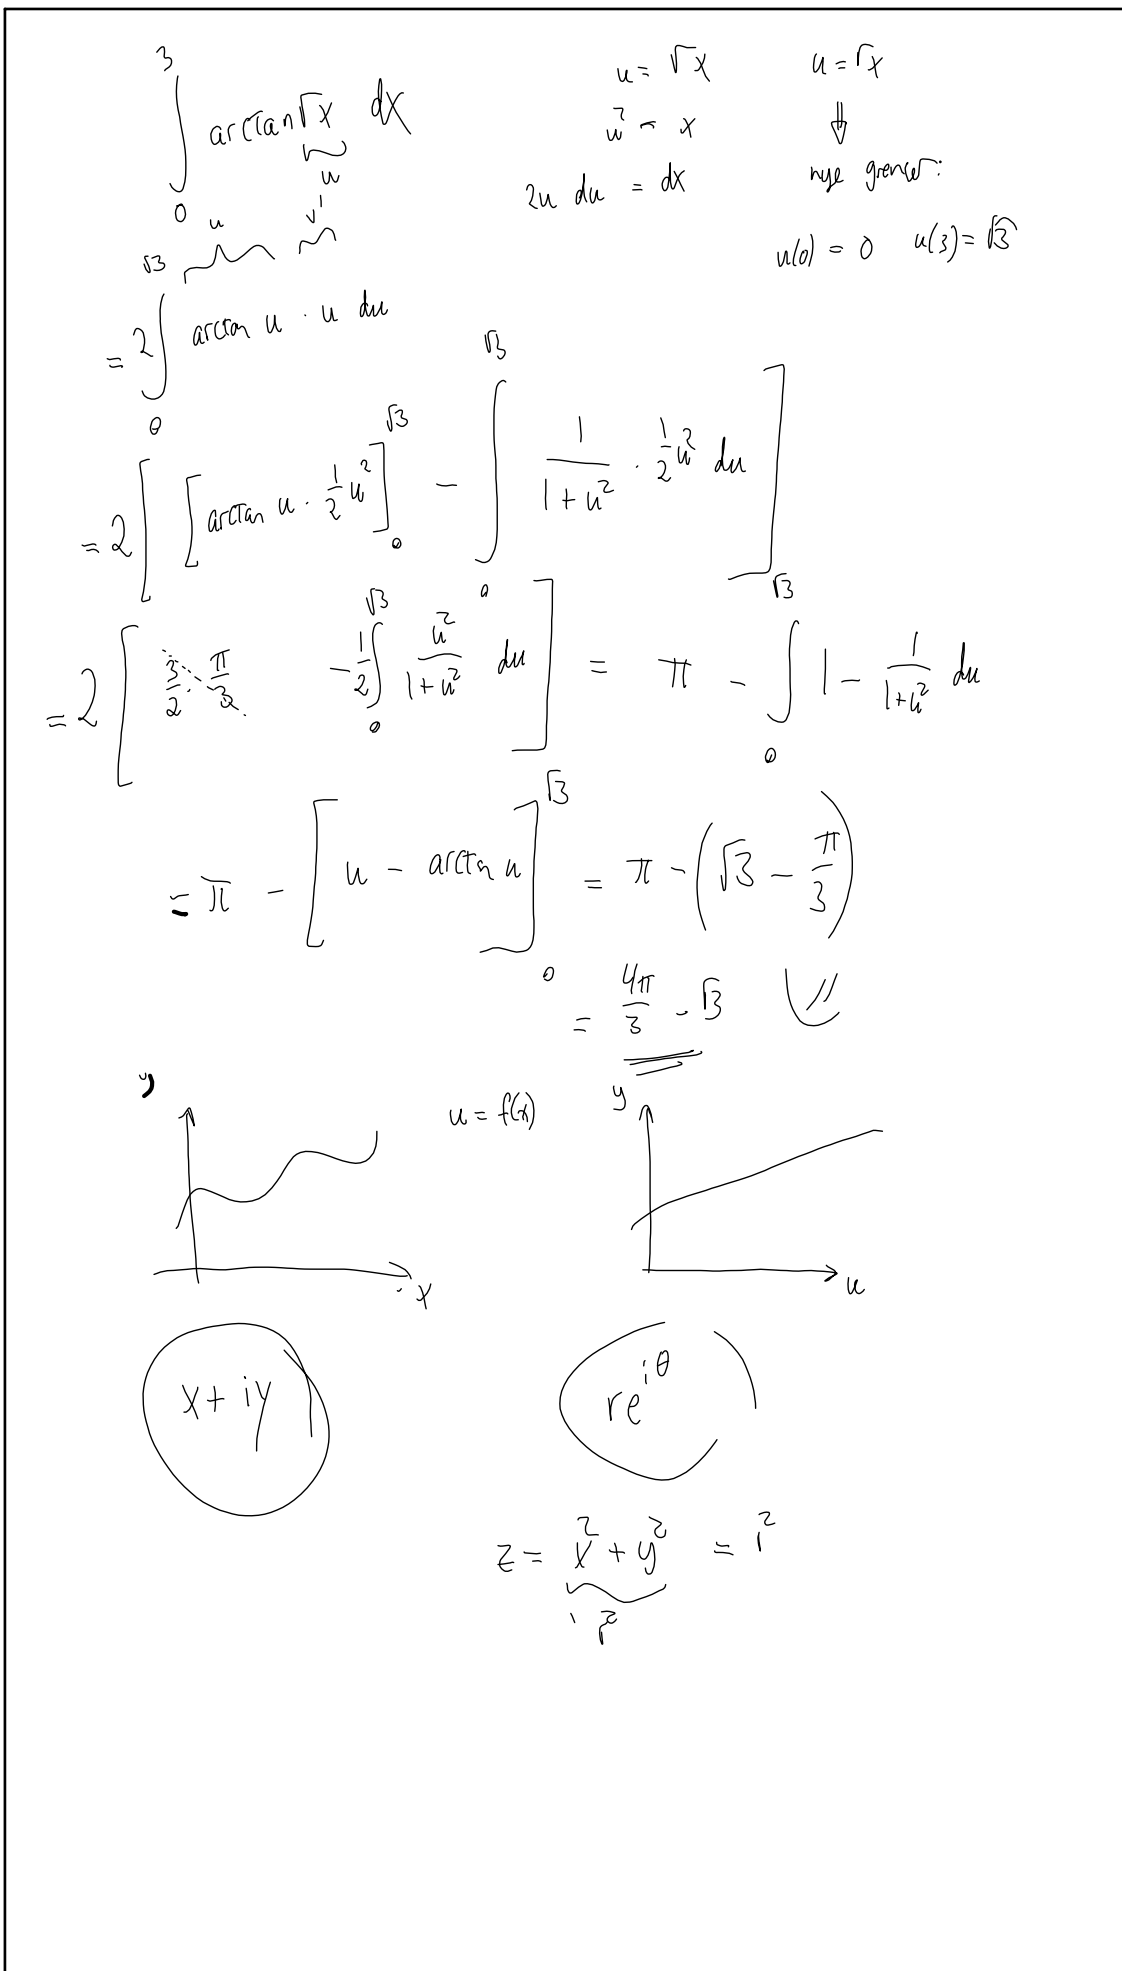 ∫₀³ arctan √x dx
u
u = √x
u² = x
2u du = dx
u = √x
⇓
nye grenser:
u(0) = 0 u(3) = √3
u v'
= 2 ∫₀^√3 arctan u · u du
= 2 [ [arctan u · 1/2 u²]₀^√3 − ∫₀^√3 1/(1+u²) · 1/2 u² du ]
= 2 [ 3/2 · π/3 − 1/2 ∫₀^√3 u²/(1+u²) du ] = π − ∫₀^√3 1 − 1/(1+u²) du
= π − [ u − arctan u ]₀^√3 = π − (√3 − π/3)
= 4π/3 − √3
y
x
u = f(x)
y
u
x + iy
re^{iθ}
z = x² + y² = r²
r²